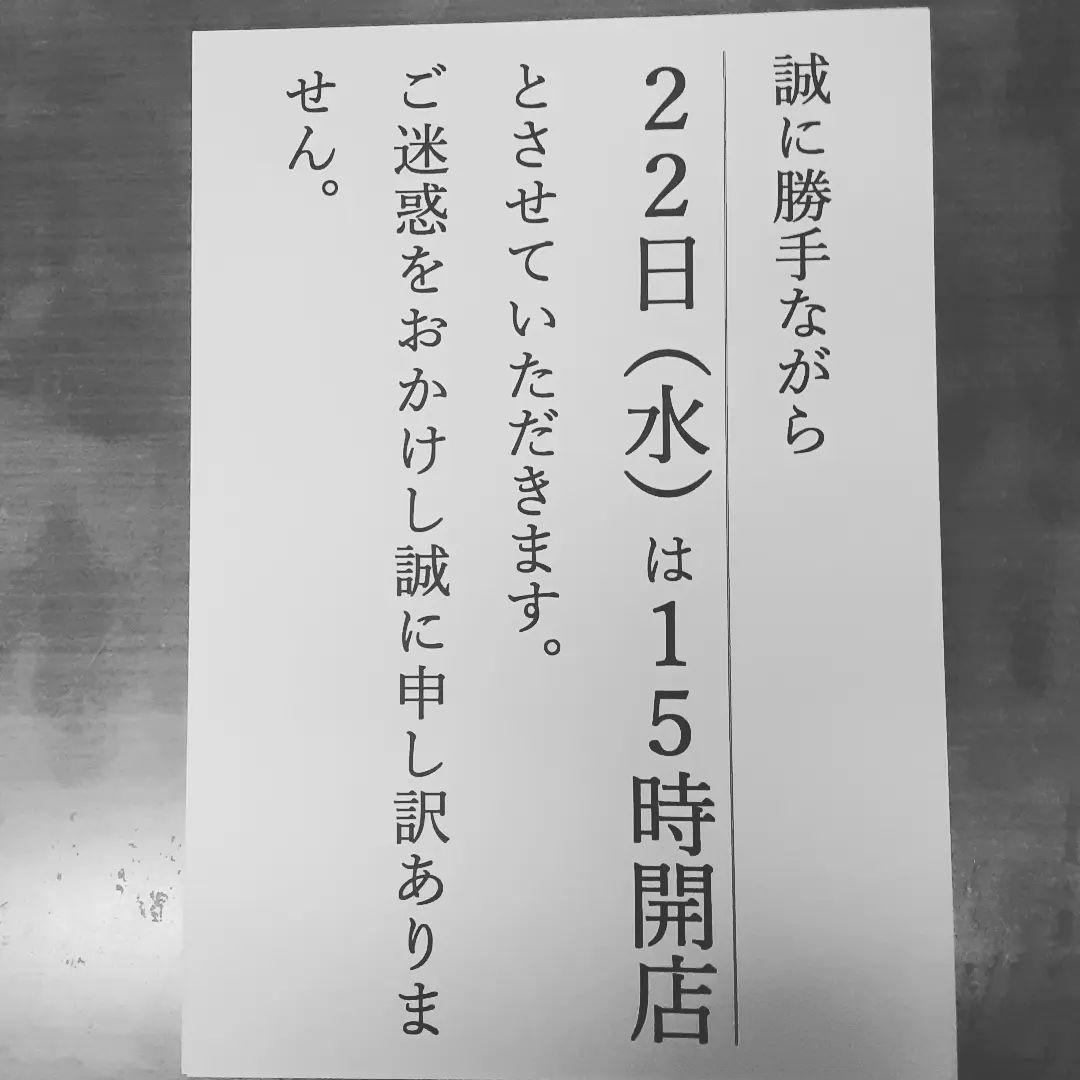 誠に勝手ながら
22日（水）は15時開店
とさせていただきます。
ご迷惑をおかけし誠に申し訳ありま
せん。